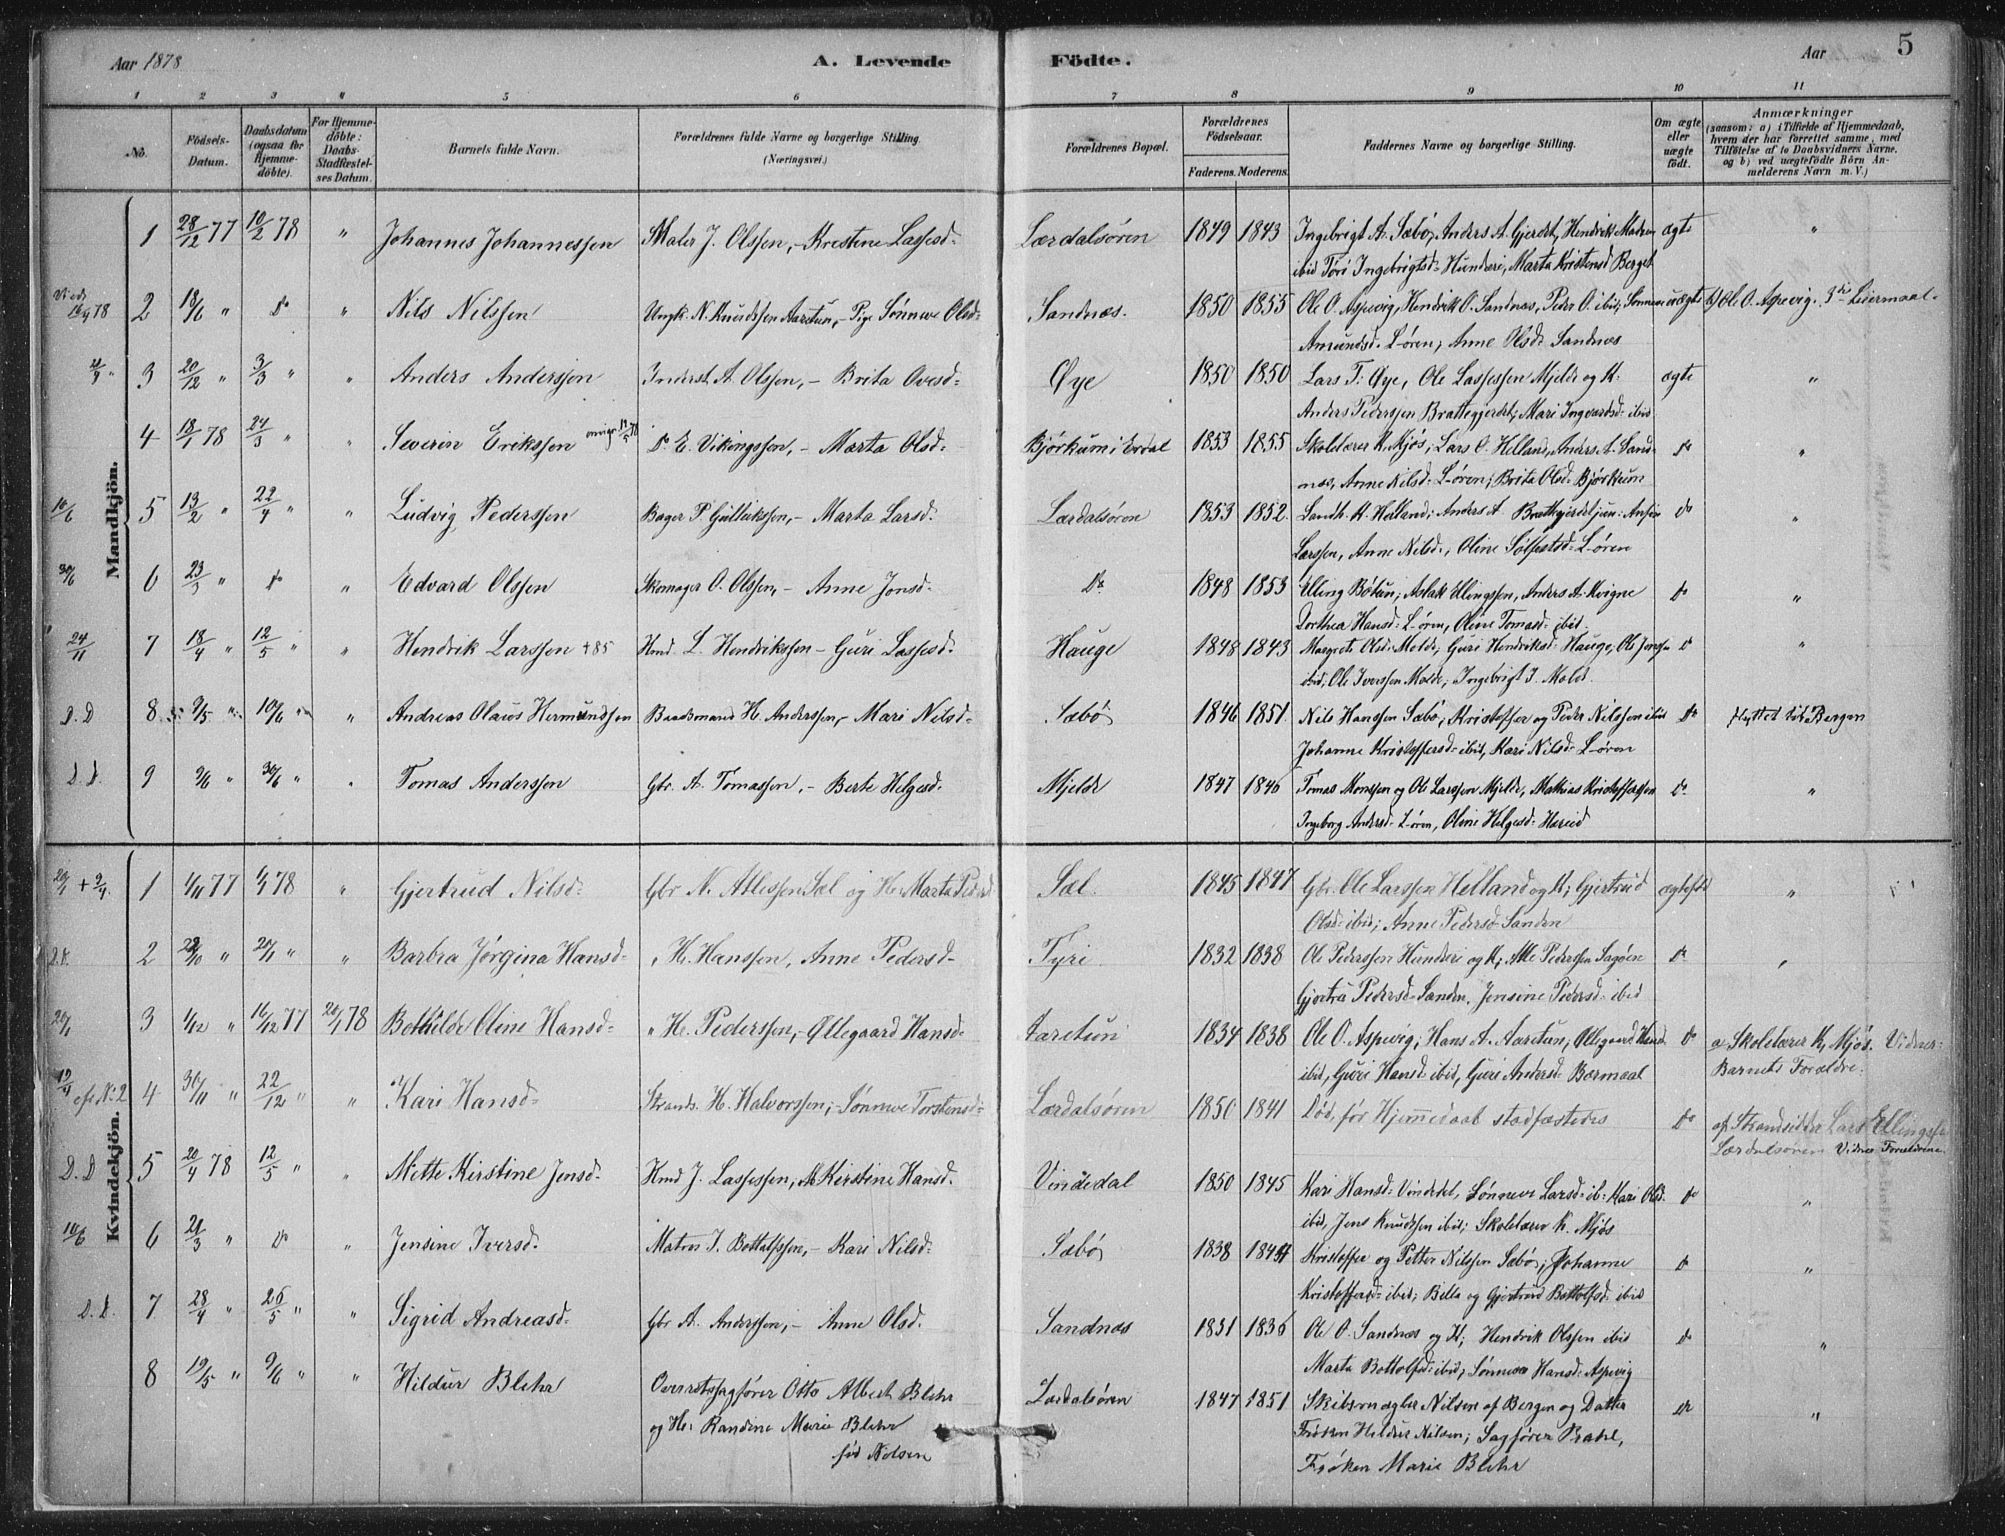 Aar 1878 A. Levende Födte. Aar 5
1 2 3 4 5 6 7 8 9 10 11
No.
Födsels-Datum.
Daabsdatum (ogsaa for Hjemme-döbte).
For Hjemme-döbte: Daabs-Stadfæstel-ses Datum.
Barnets fulde Navn.
Forældrenes fulde Navne og borgerlige Stilling. (Næringsvei.)
Forældrenes Bopæl.
Forældrenes Födselsaar.
Faderens. Moderens.
Faddernes Navne og borgerlige Stilling.
Om ægte eller uægte födt.
Anmærkninger
(saasom: a) i Tilfælde af Hjemmedaab,
hvem der har forrettet samme, med
Tilföielse af to Daabsvidners Navne,
og b) ved uægtefödte Börn An-
melderens Navn m. V.)
Mandkjön.
1 28/12 77 10/2 78 " Johannes Johannessen Maler J. Olssen, - Kristine Lassesd- Lærdalsøren 1849 1843 Ingebrigt A. Sæbø, Anders A. Gjerdet, Hendrik Madsen ægte "
ibid Tøri Ingebrigtsd- Hunderi, Marta Kristensd Berget
2 18/6 " do Nils Nilssen Ungk. N. Knudssen Aaretun, - Pige Sønneve Olsd- Sandnæs. 1850 1855 Ole O. Aspevig, Hendrik O. Sandnæs, Peder O. ibid; Sønneve uægte b) Ole O. Aspevig. 3die Leiermaal.
Amundsd. L-øren, Anne Olsd- Sandnæs
3 20/12 " 3/3 " " Anders Anderssen Inderst A. Olssen, - Brita Ovesd- Øye 1850 1850 Lars T. Øye, Ole Lassessen Mjelde og K. ægte "
Anders Pederssen Brattegjerdet, Mari Ingvardsd- ibid
4 18/1 78 24/3 " " Severin Erikssen Do E. Vikingssen, - Marta Olsd- Bjørkum i Erdal 1853 1855 Skolelærer K. Mjøs, Lars O. Helland, Anders A. Sand- do "
næs, Anne Nilsd- L-øren, Brita Olsd- Bjørkum
10/6 5 13/2 " 22/4 " " Ludvig Pederssen Bager P. Gulleikssen, - Marta Larsd- Lærdalsøren 1853 1852. Landh. H. Helland; Anders A. Brattegjerdet jun: do "
Larssen, Anne Nilsd-, Oline Sølfestsd- L-øren
30/6 6 23/3 " do " Edvard Olssen Skomager O. Olssen, - Anne Jonsd- Do 1848 1853 Elling Bøtun, Aslak Ellingssen, Anders A. Kvigne do "
Dorthea Hansd- L-øren, Oline Tomasd- ibid.
24/11 7 18/4 " 12/5 " " Hendrik Larssen +85 Hmd L. Hendrikssen - Guri Lassesd- Hauge 1848 1843 Margrete Olsd- Molde, Guri Hendriksd- Hauge, Ole Jenssen do "
ibid; Ole Iverssen Molde, Ingebrigt J. Molde
D.D 8 9/5 " 10/6 " " Andreas Olaus Hermundssen Baadsmand H. Anderssen, - Mari Nilsd- Sæbø 1846 1851. Nils Hanssen Sæbø, Kristoffer og Peder Nilssen ibid do flyttet til Bergen
Johanne Kristoffersd- ibid, Kari Nilsd- L-øren
D.D. 9 9/6 " 30/6 " " Tomas Anderssen Gbr. A. Tomassen, - Berte Helgesd- Mjelde 1847 1846 Tomas Monssen og Ole Larssen Mjelde, Mathias Kristofferssen do "
Ingeborg Andersd- L-øren, Oline Helgesd- Hareid
Kvindekjön.
1 4/11 77 6/1 78 " Gjertrud Nilsd- Gbr N. Atlessen Sæl og H: Marta Pedersd Sæl. 1845 1847 Gbr. Ole Larssen Helland og K; Gjertrud ægtefdt "
Olsd- ibid; Anne Pedersd- Sanden
2 " 20/1 " " Barbra Jørgina Hansd- " H. Hanssen, Anne Pedersd- Tyri 1832 1838 Ole Pederssen Hunderi og K, Atle Pederssen Sagøen do "
Gjertru Pedersd- Sanden, Jensine Pedersd- ibid
20/1 3 1/12 " 16/12 77 20/1 78 Bothilde Oline Hansd- " H. Pederssen, - Øllegaard Hansd- Aaretun 1834 1838 Ole O. Aspevig, Hans A. Aaretun, Øllegaard Hansd do a) Skolelærer K. Mjøs. Vidner-
ibid, Guri Hansd- ibid, Guri Andersd- Bærmaal Barnets Forældre.
4 30/11 " 22/12 " " Kari Hansd- Strands. H. Halvorssen; - Sønneve Torstensd- Lærdalsøren 1850 1841 Død, før Hjemmedaab stadfæstedes do af Strandsidder Lars Ellingssen
Lærdalsøren Vidner Forældrene.
D.D 5 20/4 78 12/5 " " Mette Kirstine Jensd- Hmd J. Lassessen, - Kirstine Hansd. Vindedal 1850 1845 Kari Hansd- Vindedal, Sønneve Larsd- ib- Mari Olsd. do "
ibid, Jens Knudssen ibid; Skolelærer K. Mjøs
10/6 6 21/3 " do " Jensine Iversd- Matros I. Bottolfssen, - Kari Nilsd- Sæbø 1838 1844 Kristoffer og Petter Nilssen Sæbø, Johanne do "
Kristoffersd- ibid; Bella og Gjertrud Bottolfsd- ibid
D.D. 7 28/4 " 26/5 " " Sigrid Andreasd- Gbr A. Anderssen, - Anne Olsd. Sandnæs 1831 1836 Ole O. Sandnæs og K; Hendrik Olssen ibid do "
Marta Bottolfsd- ibid; Sønneva Hansd- Aspevig
8 19/5 " 9/6 " " Hildur Blehr Overretssagfører Otto Albert Blehr Lærdalsøren 1847 1851 Skibsmægler Nilsen af Bergen og Datter do "
og H: Randine Marie Blehr Frøken Hildur Nilsen; Sagfører Prahl,
fød Nilsen Frøken Marie Blehr